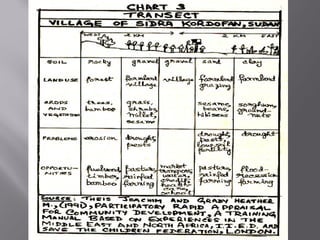 CHART 3
TRANSECT
VILLAGE OF SIDRA KORDOFAN, SUDAN
WEST 2 KM 2 KM EAST
SOIL rocky gravel gravel sand clay
LANDUSE forest farmland village village farmland grazing farmland
CROPS AND trees, bamboo grass, shrubs, millet, sesame sesame, beans, hibiscus sorghum, ground-nuts
PROBLEMS erosion drought, pests drought, pests, low soil fertility drought
OPPORTU-NITIES fuelwood timber, bamboo pasture, rainfed farming market water, health school pasture, rainfed farming flood-recession farming
SOURCE: THEIS JOACHIM AND GRADY HEATHER
M., (1990), PARTICIPATORY RAPID APPRAISAL
FOR COMMUNITY DEVELOPMENT, A TRAINING
MANUAL BASED ON EXPERIENCE IN THE
MIDDLE EAST AND NORTH AFRICA, I.I.E.D. AND
SAVE THE CHILDREN FEDERATION, LONDON.